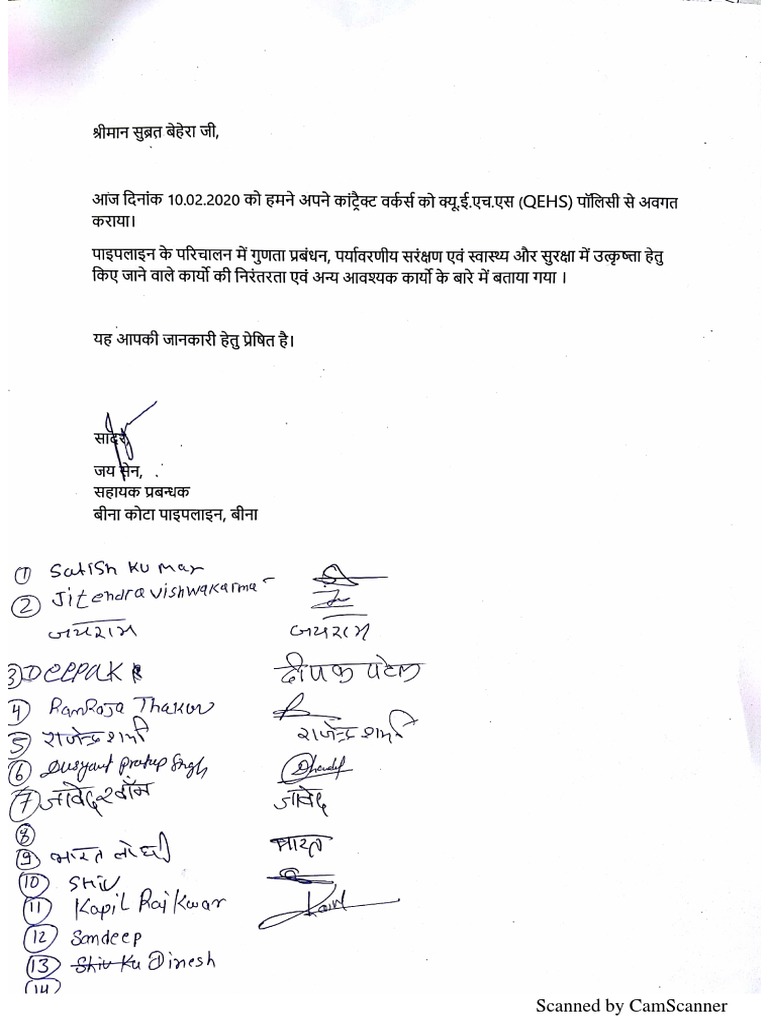 श्रीमान सुब्रत बेहेरा जी,
आज दिनांक 10.02.2020 को हमने अपने कांट्रैक्ट वर्कर्स को क्यू.ई.एच.एस (QEHS) पॉलिसी से अवगत
कराया।
पाइपलाइन के परिचालन में गुणता प्रबंधन, पर्यावरणीय सरंक्षण एवं स्वास्थ्य और सुरक्षा में उत्कृष्ता हेतु
किए जाने वाले कार्यो की निरंतरता एवं अन्य आवश्यक कार्यो के बारे में बताया गया ।
यह आपकी जानकारी हेतु प्रेषित है।
सादर,
जय सेन,
सहायक प्रबन्धक
बीना कोटा पाइपलाइन, बीना
1 Satish Kumar
2 Jitendra Vishwakarma
जयराम जयराम
3) DEEPAK दीपक पटेल
4) RamRaja Thakur
5) राजेन्द्र शर्मा राजेन्द्र शर्मा
6 Dusyant Pratap Singh
7 जावेद खाँन जावेद
8
9 भारत लोधी भारत
10 Shiv
11 Kapil Raikwar
12 Sandeep
13 Shiv Ku Dinesh
14
Scanned by CamScanner